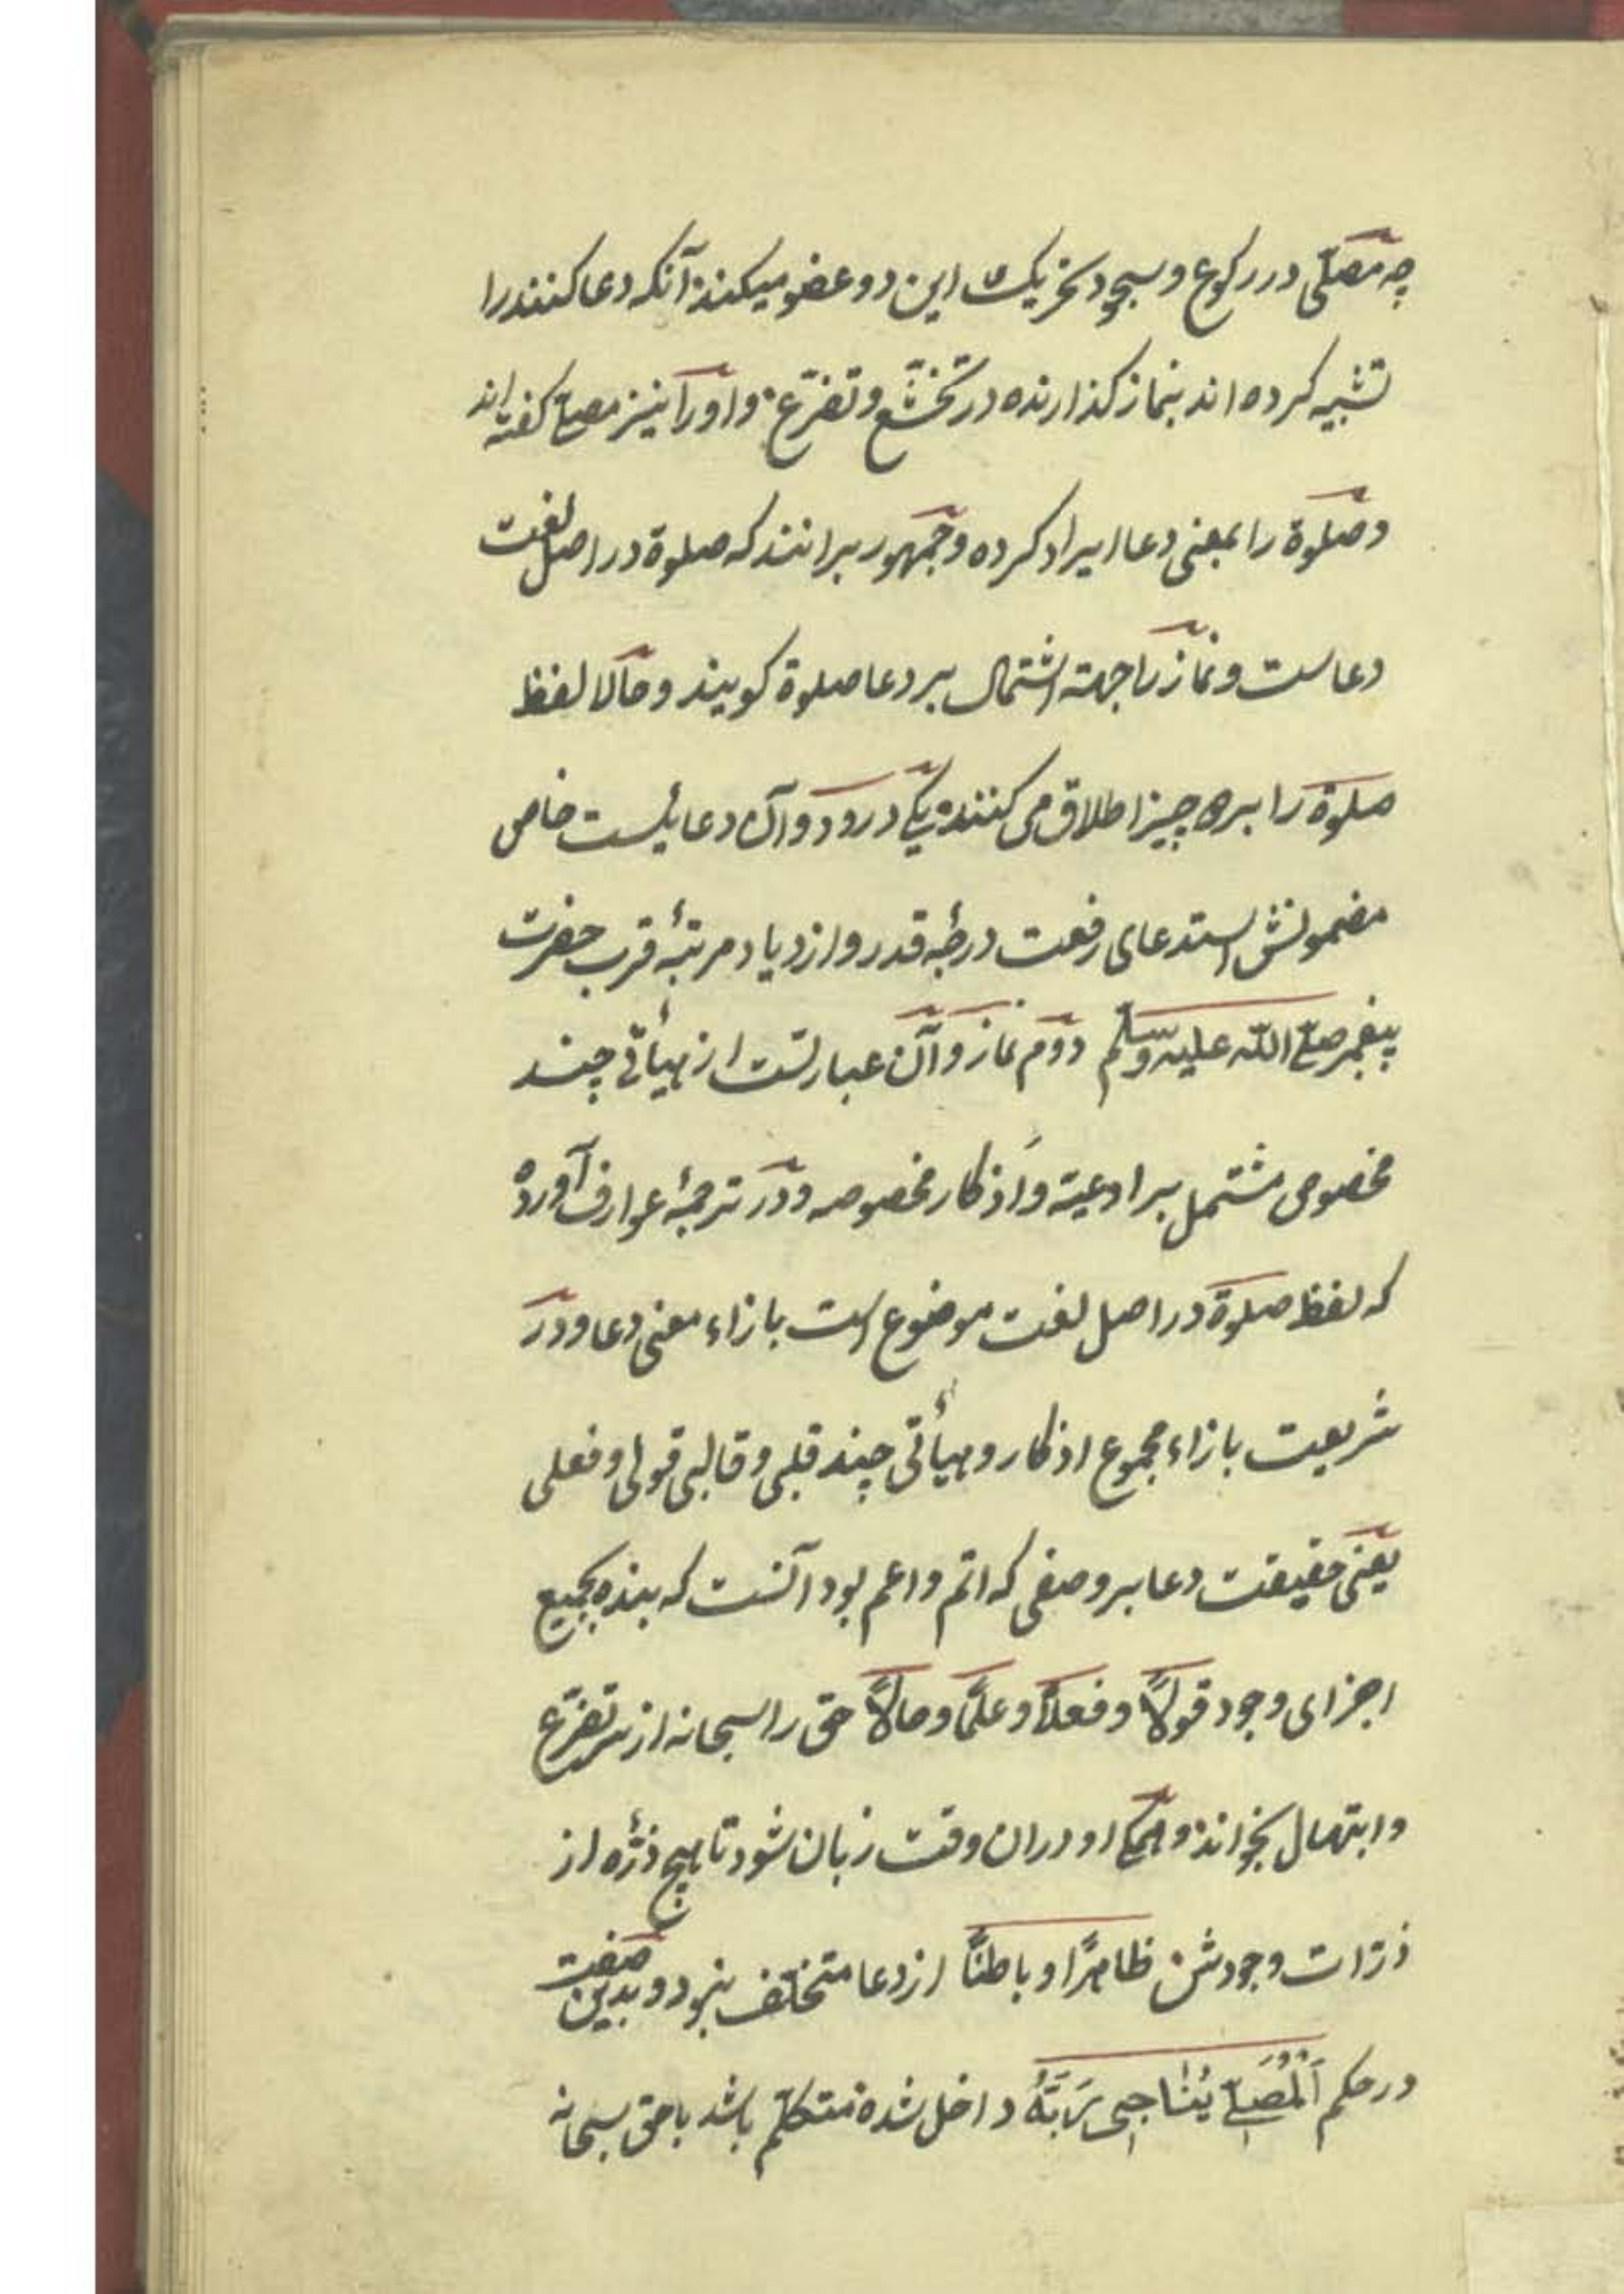 چه مصلّی در رکوع و سجود تحریک این دو عضو میکند آنکه دعا کننده را
تشبیه کرده اند بنماز کذارنده در تخشّع و تضرّع و او را نیز مصلّے کفته اند
و صلوة را بمعنی دعا ایراد کرده و جمهور برانند که صلوة در اصل لغت
دعاست و نماز را جهته اشتمال بر دعا صلوة کویند و حالا لفظ
صلوة را بر دو چیز اطلاق می کنند یکے درود و آن دعائیست خاص
مضمونش استدعای رفعت درجۀ قدر و ازدیاد مرتبۀ قرب حضرت
پیغمبر صلّے اللّه علیه وسلّم دوم نماز و آن عبارتست از هیأتی چند
مخصوص مشتمل بر ادعیّه و اَذکار مخصوصه و در ترجمۀ عوارف آورده
که لفظ صلوة در اصل لغت موضوع است بازاء معنی دعا و در
شریعت بازاء مجموع اذکار و هیأتی چند قلبی و قالبی قولی و فعلی
یعنی حقیقت دعا بر وصفی که اتم و اعم بود آنست که بنده بجمیع
اجزای وجود قولاً و فعلاً و علمًا و حالاً حق را سبحانه از سر تضرّع
و ابتهال بخواند و همکے او دران وقت زبان شود تا هیچ ذرّۀ از
ذرّات وجودش ظاهرًا و باطنًا از دعا متخلّف نبود و بدین صفت
در حکم اَلْمُصَلّے یُنَاجِی رَبَّهُ داخل شده متکلّم باشد با حق سبحانه